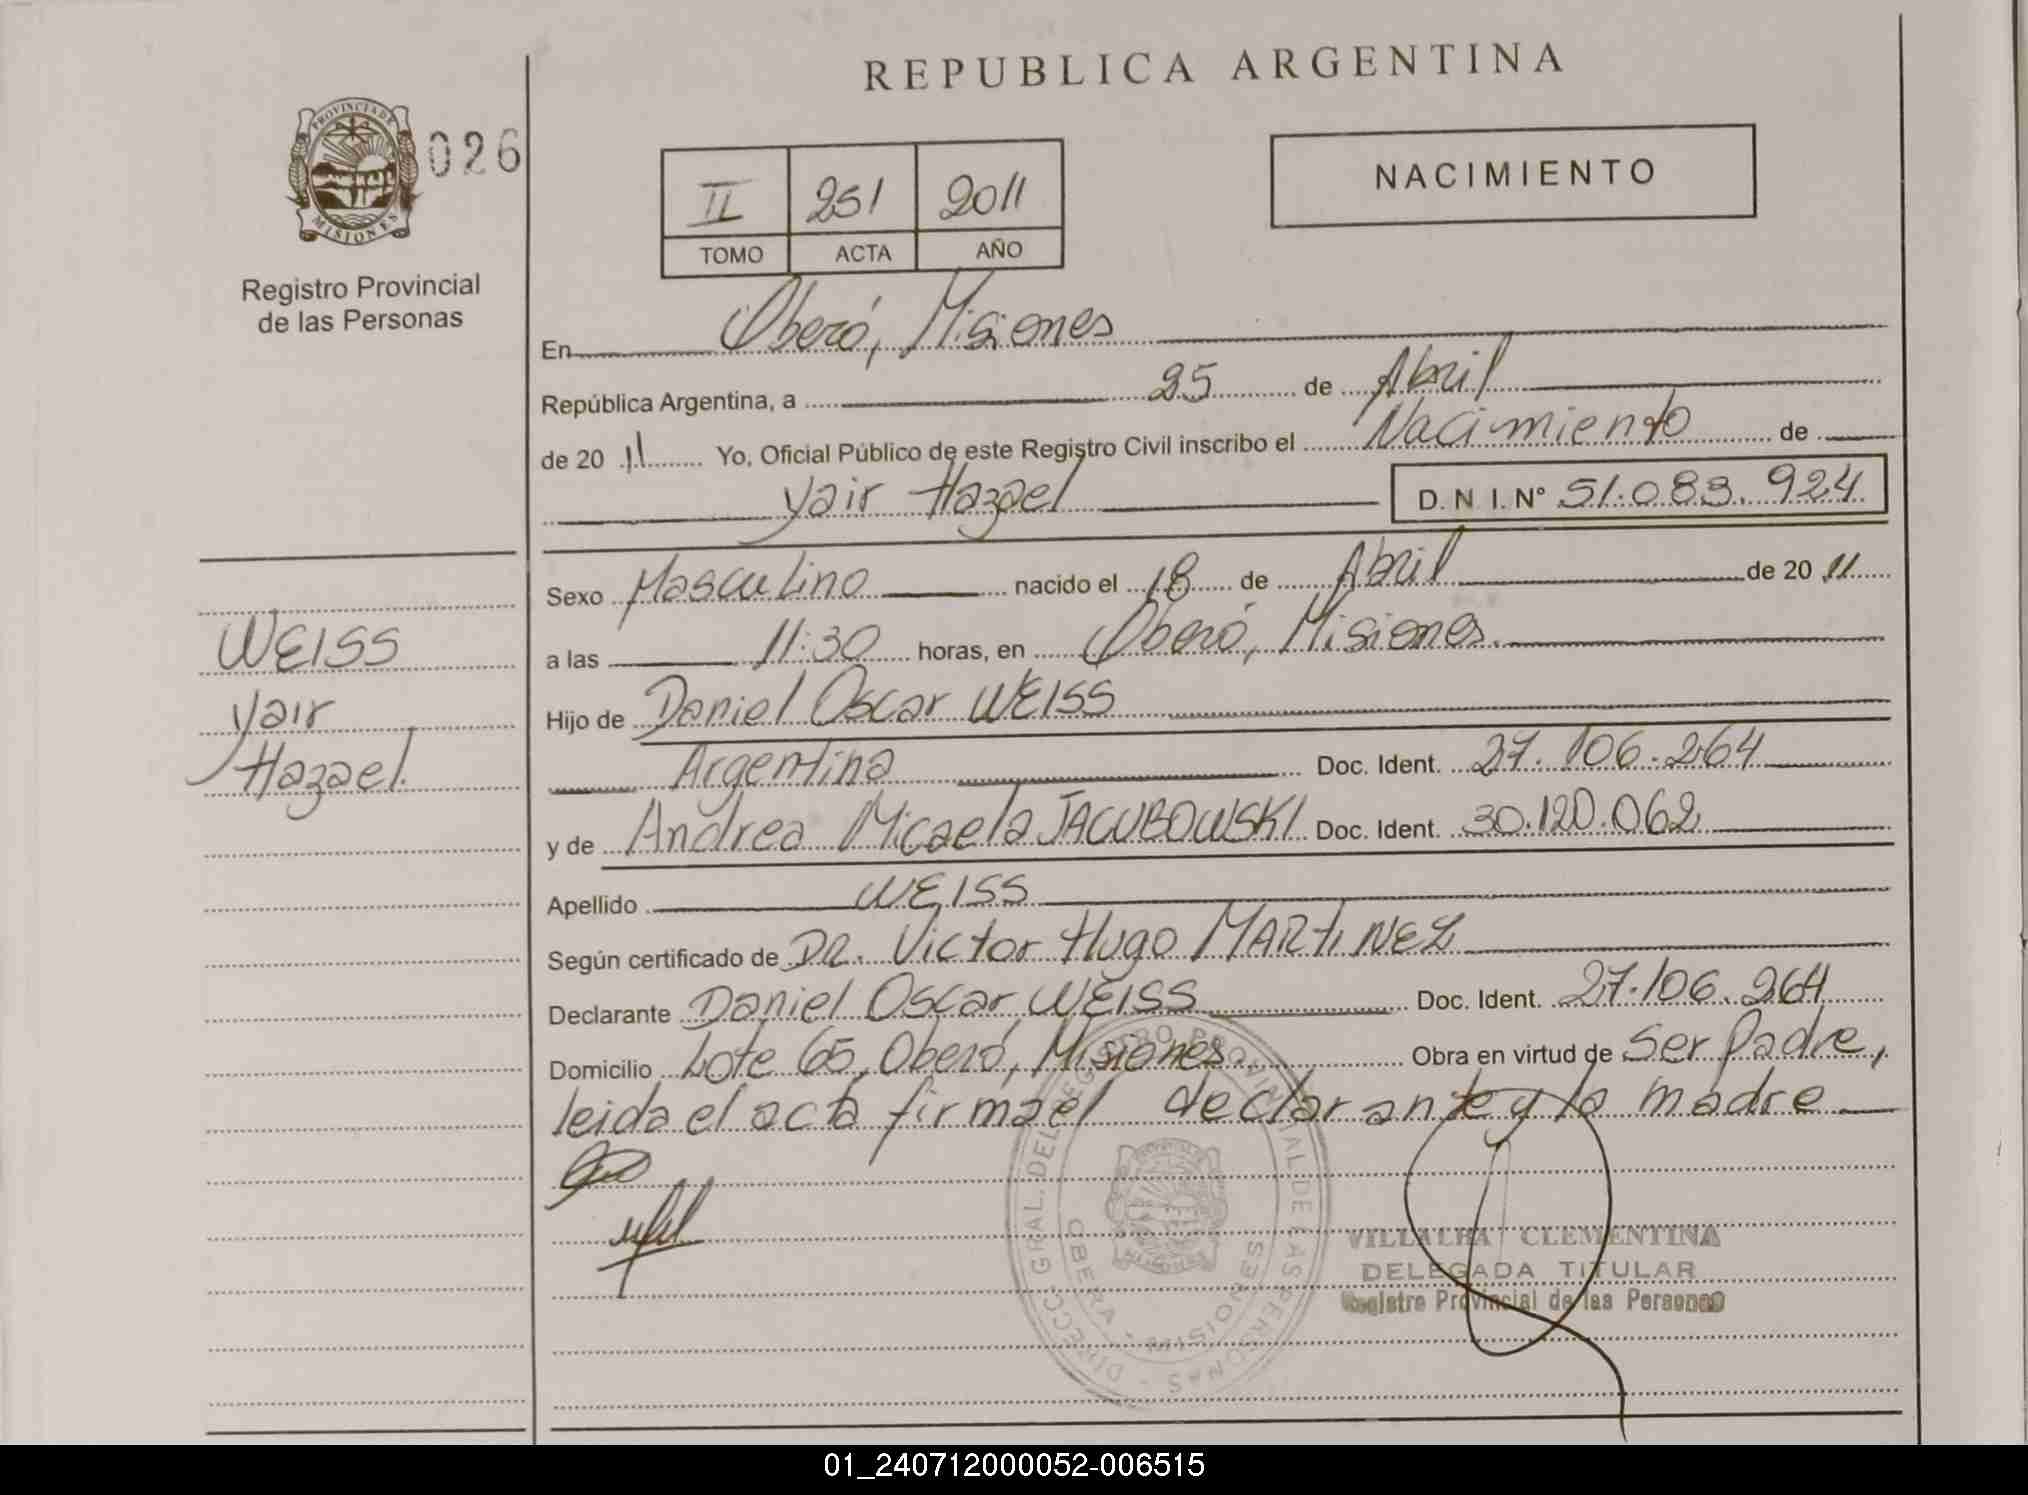 REPUBLICA ARGENTINA
PROVINCIA DE
MISIONES
026
Registro Provincial
de las Personas
II 251 2011
TOMO ACTA AÑO
NACIMIENTO
En Oberá, Misiones
República Argentina, a 25 de Abril
de 2011 Yo, Oficial Público de este Registro Civil inscribo el Nacimiento de
Yair Hazael D.N.I.Nº 51.083.924
Sexo Masculino nacido el 18 de Abril de 2011
WEISS
Yair
Hazael.
a las 11:30 horas, en Oberá, Misiones.
Hijo de Daniel Oscar WEISS
Argentina Doc. Ident. 27.106.264
y de Andrea Micaela JACUBOWSKI Doc. Ident. 30.120.062
Apellido WEISS
Según certificado de DR. Victor Hugo MARTINEZ
Declarante Daniel Oscar WEISS Doc. Ident. 27.106.264
Domicilio Lote 65, Oberá, Misiones Obra en virtud de Ser Padre,
leida el acta firma el declarante y la madre
DIRECC. GRAL. DEL REGISTRO PROVINCIAL DE LAS PERSONAS
OBERA - MISIONES
VILLALBA CLEMENTINA
DELEGADA TITULAR
Registro Provincial de las Personas
01_240712000052-006515